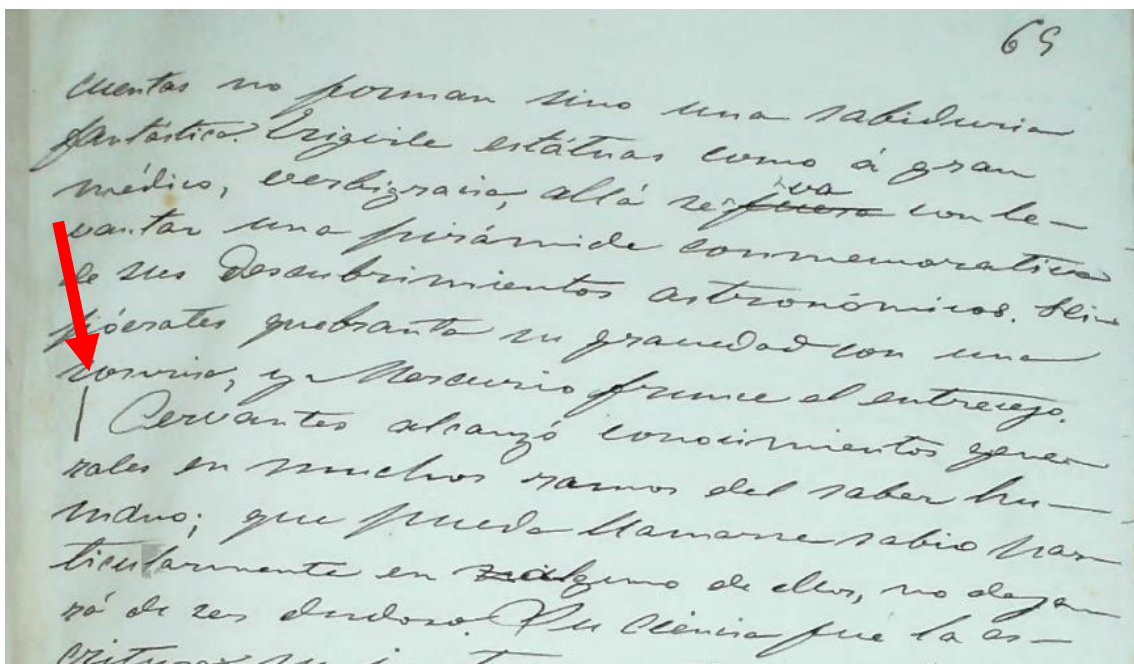 69
cuentas no forman sino una sabiduria
fantástica? Erigirle estátuas como á gran
médico, verbigracia, allá se va fuera con le-
vantar una pirámide conmemorativa
de sus descubrimientos astronómicos. Hi-
pócrates quebranta su gravedad con una
sonrisa, y Mercurio frunce el entrecejo.
Cervantes alcanzó conocimientos gene-
rales en muchos ramos del saber hu-
mano; que pueda llamarse sabio par-
ticularmente en alguno de ellos, no dejar
rá de ser dudoso. Su ciencia fue la es-
critura